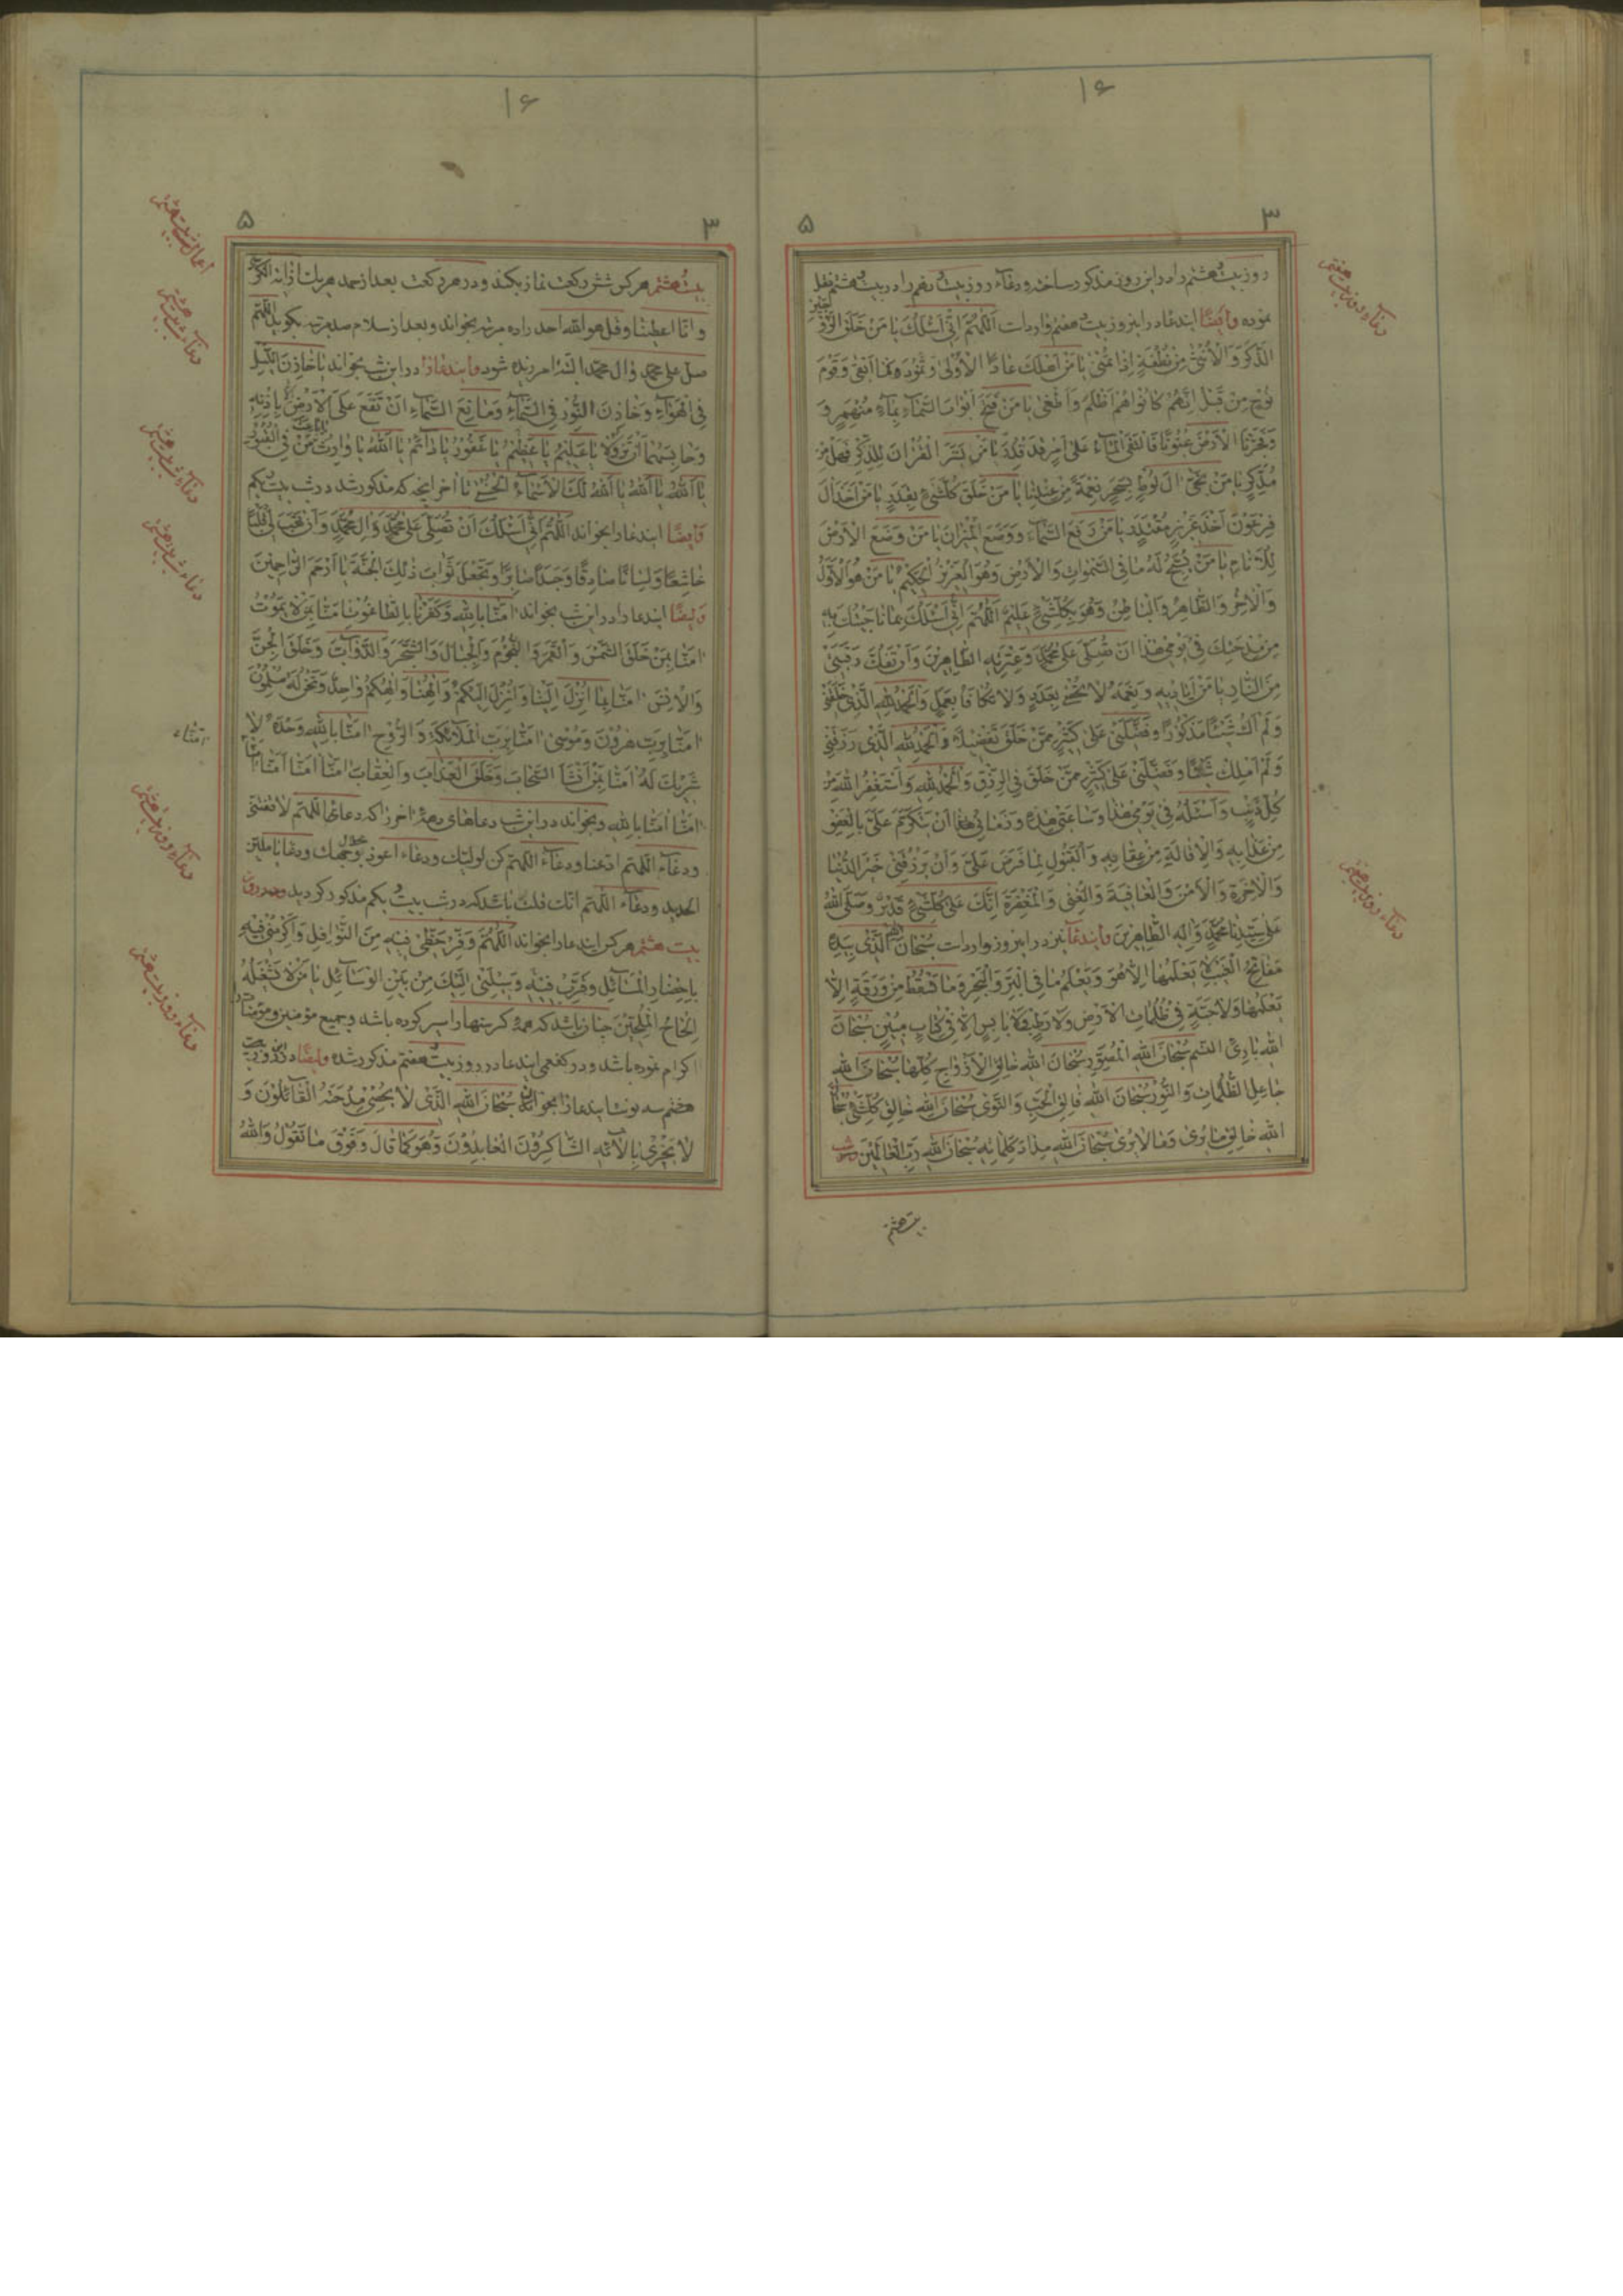 ۱۶
۳
۵
روز بیست هشتم را در این روز مذکور ساخته و دعاء روز بیست نهم را در بیست هشتم نقل
نموده وایضًا ایندعا در اینروز بیست هفتم وارد است اَللّٰهُمَّ اِنّی اَسْئَلُكَ یا مَنْ خَلَقَ الزَّوْجَیْنِ
الذَّکَرَ وَ الْاُنْثیٰ مِنْ نُطْفَةٍ اِذا تُمْنیٰ یا مَنْ اَهْلَكَ عاداً الْاُولیٰ وَ ثَمُودَ فَما اَبْقیٰ وَ قَوْمَ
نُوحٍ مِنْ قَبْلُ اِنَّهُمْ کانُوا هُمْ اَظْلَمَ وَ اَطْغیٰ یا مَنْ فَتَحَ اَبْوابَ السَّمآءِ بِمآءٍ مُنْهَمِرٍ وَ
وَ فَجَّرْنَا الْاَرْضَ عُیُونًا فَالْتَقَی الْمآءُ عَلیٰ اَمْرٍ قَدْ قُدِرَ یا مَنْ یَسَّرَ الْقُرْآنَ لِلذِّکْرِ فَهَلْ مِنْ
مُدَّکِرٍ یا مَنْ نَجّیٰ الَ لُوطٍ بِسَحَرٍ نِعْمَةً مِنْ عِنْدِنا یا مَنْ خَلَقَ کُلَّشَیْءٍ بِقَدَرٍ یا مَنْ اَخَذَ الَ
فِرْعَوْنَ اَخْذَ عَزِیزٍ مُقْتَدِرٍ یا مَنْ رَفَعَ السَّمآءَ وَ وَضَعَ الْمیزانَ یا مَنْ وَضَعَ الْاَرْضَ
لِلْاَنامِ یا مَنْ یُسَبِّحُ لَهُ ما فِی السَّمٰواتِ وَ الْاَرْضِ وَ هُوَ الْعَزِیزُ الْحَکِیمُ یا مَنْ هُوَ الْاَوَّلُ
وَ الْاٰخِرُ وَ الظّاهِرُ وَ الْباطِنُ وَ هُوَ بِکُلِّشَیْءٍ عَلِیمٌ اَللّٰهُمَّ اِنّی اَسْئَلُكَ بِما ناجَیْتُكَ بِهِ
مِنْ مِدْحَتِكَ فِی یَوْمِی هٰذا اَنْ تُصَلِّیَ عَلیٰ مُحَمَّدٍ وَ عِتْرَتِهِ الطّاهِرِینَ وَ اَنْ تَفُكَّ رَقَبَتی
مِنَ النّارِ یا مَنْ اَیادِیهِ وَ نِعَمُهُ لا تُحْصیٰ بِعَدَدٍ وَلا تُکافَأُ بِعَمَلٍ وَ الْحَمْدُ لِلّٰهِ الَّذی خَلَقَنی
وَ لَمْ اَكُ شَیْئًا مَذْکُورًا وَ فَضَّلَنی عَلیٰ کَثِیرٍ مِمَّنْ خَلَقَ تَفْضِیلًا وَ الْحَمْدُ لِلّٰهِ الَّذی رَزَقَنی
وَ لَمْ اَمْلِكْ شَیْئًا وَ فَضَّلَنی عَلیٰ کَثِیرٍ مِمَّنْ خَلَقَ فِی الرِّزْقِ وَ الْحَمْدُ لِلّٰهِ وَ اَسْتَغْفِرُ اللهَ مِنْ
کُلِّ ذَنْبٍ وَ اَسْئَلُهُ فِی یَوْمی هٰذا وَ ساعَتی هٰذِهِ وَ زَمانی هٰذا اَنْ یَتَکَرَّمَ عَلَیَّ بِالْعَفْوِ
مِنْ عَذابِهِ وَ الْاِقالَةِ مِنْ عِقابِهِ وَ الْقَبُولِ لِما فَرَضَ عَلَیَّ وَ اَنْ یَرْزُقَنی خَیْرَ الدُّنْیا
وَ الْاٰخِرَةِ وَ الْاَمْنَ وَ الْعافِیَةَ وَ الْغِنیٰ وَ الْمَغْفِرَةَ اِنَّكَ عَلیٰ کُلِّشَیْءٍ قَدِیرٌ وَ صَلَّی اللهُ
عَلیٰ سَیِّدِنا مُحَمَّدٍ وَ الِهِ الطّاهِرِینَ وایندعا نیز در اینروز وارد است سُبْحانَ اللهِ الَّذی بِیَدِهِ
مَفاتِحُ الْغَیْبِ لا یَعْلَمُها اِلّا هُوَ وَ یَعْلَمُ ما فِی الْبَرِّ وَ الْبَحْرِ وَ ما تَسْقُطُ مِنْ وَرَقَةٍ اِلّا
یَعْلَمُها وَلا حَبَّةٍ فی ظُلُماتِ الْاَرْضِ وَلا رَطْبٍ وَلا یابِسٍ اِلّا فی کِتابٍ مُبینٍ سُبْحانَ
اللهِ بارِئِ النَّسَمِ سُبْحانَ اللهِ الْمُصَوِّرِ سُبْحانَ اللهِ خالِقِ الْاَزْواجِ کُلِّها سُبْحانَ اللهِ
جاعِلِ الظُّلُماتِ وَ النُّورِ سُبْحانَ اللهِ فالِقِ الْحَبِّ وَ النَّوی سُبْحانَ اللهِ خالِقِ کُلِّشَیْءٍ سُبْحانَ
اللهِ خالِقِ ما یُریٰ وَ ما لا یُریٰ سُبْحانَ اللهِ مِدادَ کَلِماتِهِ سُبْحانَ اللهِ رَبِّ الْعالَمینَ
بیست هشتم
دعاء روز بیست هفتم
دعاء روز بیست هفتم
۱۶
۳
۵
بیست هشتم هر کس شش رکعت نماز بکند و در هر رکعت بعد از حمد هر یك از آیة الکرسی
و انّا اعطینا و قل هو الله احد را ده مرتبه بخواند و بعد از سلام صد مرتبه بگوید اللّٰهم
صلّ علی محمد و ال محمد البته امرزیده شود وایندعا را در این شب بخواند یا خازِنَ اللَّیْلِ
فِی الْهَوآءِ وَ خازِنَ النُّورِ فِی السَّمآءِ وَ مانِعَ السَّمآءِ اَنْ تَقَعَ عَلَی الْاَرْضِ اِلّا بِاِذْنِهِ
وَ حابِسَهُما اَنْ تَزُولا یا عَلِیمُ یا عَظِیمُ یا غَفُورُ یا دآئِمُ یا اَللهُ یا وارِثُ یا باعِثَ مَنْ فِی الْقُبُورِ
یا اَللهُ یا اَللهُ یا اَللهُ لَكَ الْاَسْمآءُ الْحُسْنیٰ تا آخر آنچه که مذکور شد در شب بیست یکم
وَایضًا ایندعا را بخواند اَللّٰهُمَّ اِنّی اَسْئَلُكَ اَنْ تُصَلِّیَ عَلیٰ مُحَمَّدٍ وَ الِ مُحَمَّدٍ وَ اَنْ تَهَبَ لی قَلْبًا
خاشِعًا وَ لِسانًا صادِقًا وَ جَسَدًا صابِرًا وَ تَجْعَلَ ثَوابَ ذٰلِكَ الْجَنَّةَ یا اَرْحَمَ الرّاحِمِینَ
وَایضًا ایندعا را در این شب بخواند امَنّا بِاللهِ وَ کَفَرْنا بِالطّاغُوتِ امَنّا بِمَنْ لا یَمُوتُ
امَنّا بِمَنْ خَلَقَ الشَّمْسَ وَ الْقَمَرَ وَ النُّجُومَ وَ الْجِبالَ وَ الشَّجَرَ وَ الدَّوآبَّ وَ خَلَقَ الْجِنَّ
وَ الْاِنْسَ امَنّا بِما اُنْزِلَ اِلَیْنا وَ اُنْزِلَ اِلَیْکُمْ وَ اِلٰهُنا وَ اِلٰهُکُمْ واحِدٌ وَ نَحْنُ لَهُ مُسْلِمُونَ
امَنّا بِرَبِّ هٰرُونَ وَ مُوسیٰ امَنّا بِرَبِّ الْمَلآئِکَةِ وَ الرُّوحِ امَنّا بِاللهِ وَحْدَهُ لا
شَرِیكَ لَهُ امَنّا بِمَنْ اَنْشَاَ السَّحابَ وَ خَلَقَ الْعَذابَ وَ الْعِقابَ امَنّا امَنّا امَنّا امَنّا
امَنّا امَنّا بِاللهِ وبخواند در این شب دعاهای دههٔ آخر را که دعای اللّٰهم لا تفتنی
ودعاء اللّٰهم ادعنا ودعاء اللّٰهم کن لولیّك ودعاء اعوذ بجلال وجهك ودعا یا ملیّن
الحدید ودعاء اللّٰهم انّك قلت باشد که در شب بیست یکم مذکور گردید ودر روز
بیست هشتم هر کس ایندعا را بخواند اَللّٰهُمَّ وَفِّرْ حَظّی فیهِ مِنَ النَّوافِلِ وَ اَکْرِمْنی فیهِ
بِاِحْضارِ الْمَسآئِلِ وَ قَرِّبْ فیهِ وَسیلَتی اِلَیْكَ مِنْ بَیْنِ الْوَسآئِلِ یا مَنْ لا یَشْغَلُهُ
اِلْحاحُ الْمُلِحّینَ چنان باشد که همه گرسنها را سیر کرده باشد و جمیع مؤمنین و مؤمنات را
اکرام نموده باشد ودر کفعمی ایندعا در روز بیست هفتم مذکور شده وایضًا در روز بیست
هشتم سه نوبت ایندعا را بخواند سُبْحانَ اللهِ الَّذی لا یُحْصی مِدْحَتَهُ الْقآئِلُونَ وَ
لا یَجْزی بِالٰآئِهِ الشّاکِرُونَ الْعابِدُونَ وَ هُوَ کَما قالَ وَ فَوْقَ ما نَقُولُ وَ اللهُ
اعمال شب بیست هشتم
دعاء شب بیست هشتم
دعاء شب بیست هشتم
دعاء شب بیست هشتم
امنّا
دعاء روز بیست هشتم
دعاء روز بیست هشتم